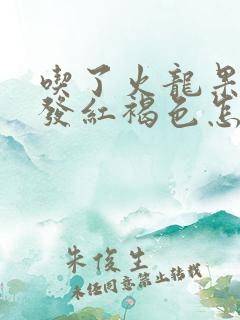 喫了火龍果
發紅褐色怎
朱俊生
未经同意禁止转载